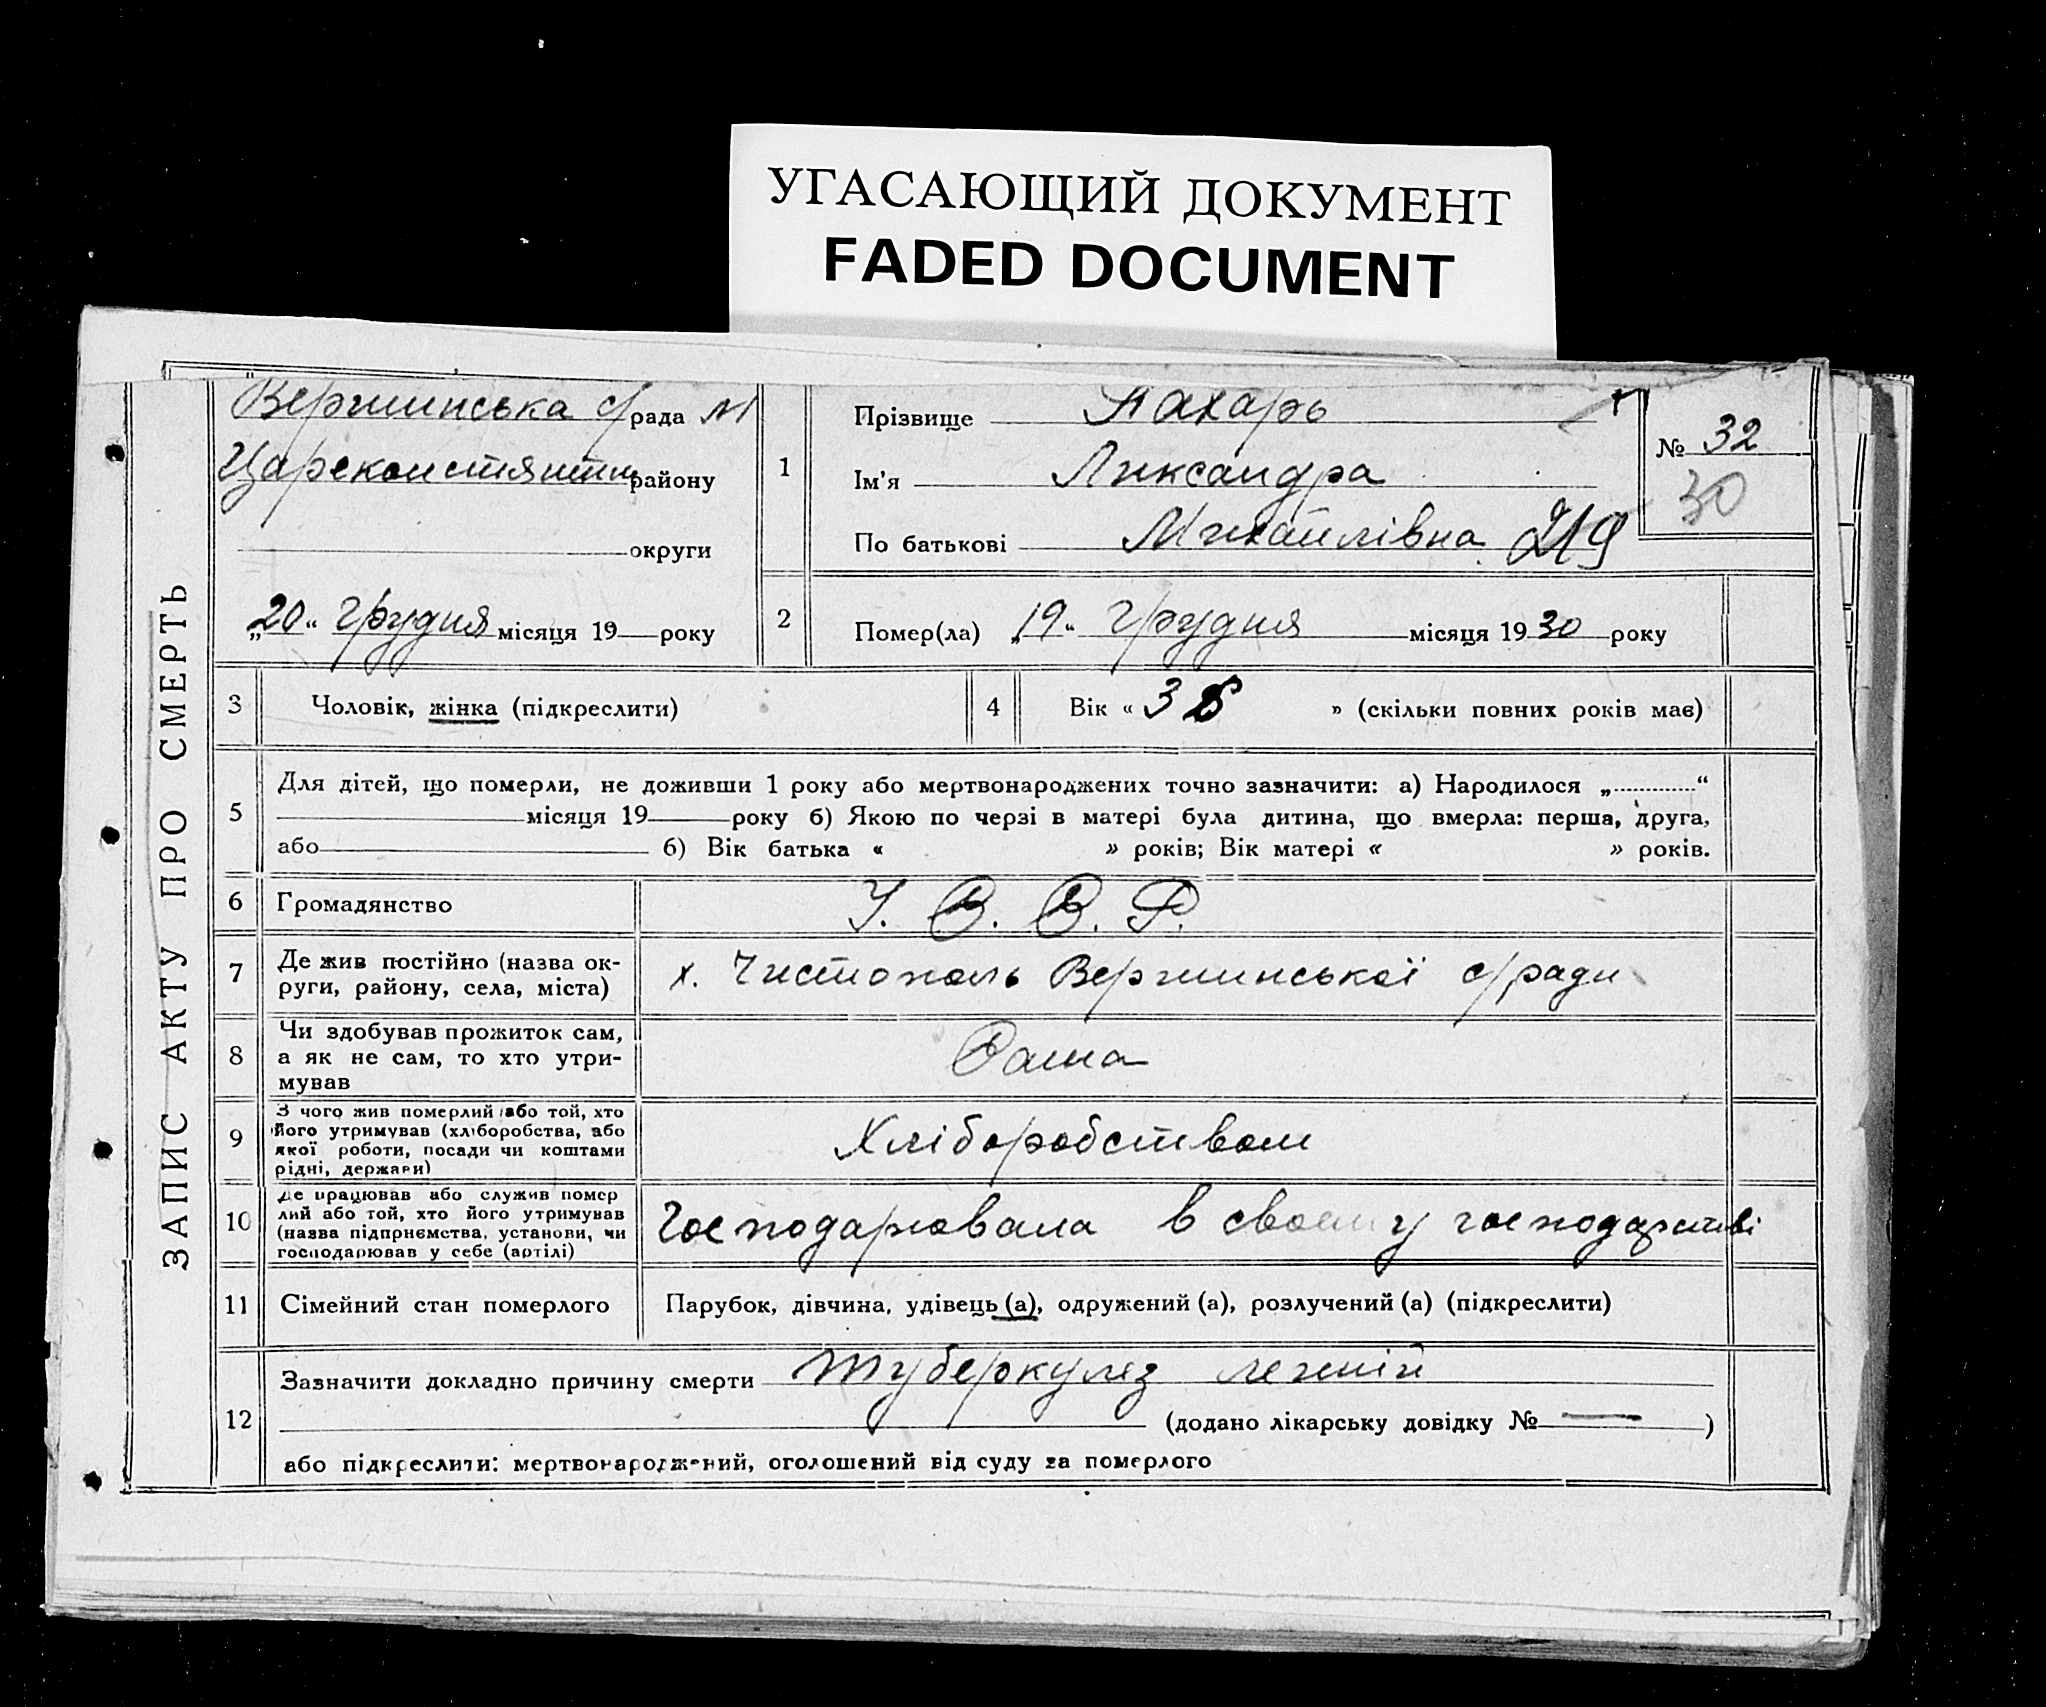 УГАСАЮЩИЙ ДОКУМЕНТ
FADED DOCUMENT
ЗАПИС АКТУ ПРО СМЕРТЬ
Вершинська с/рада
Цареконстянтин району
округи
„20“ грудня місяця 19 року
1
Прізвище Пахарь
Ім'я Лнксандра
По батькові Михайлівна
№ 32
30
2
Помер(ла) „19“ грудня місяця 1930 року
3 Чоловік, жінка (підкреслити)
4 Вік « 38 » (скільки повних років має)
5
Для дітей, що померли, не доживши 1 року або мертвонароджених точно зазначити: а) Народилося „ “
місяця 19 року б) Якою по черзі в матері була дитина, що вмерла: перша, друга,
або б) Вік батька « » років; Вік матері « » років.
6 Громадянство У. С. С. Р.
7
Де жив постійно (назва ок-
руги, району, села, міста)
х. Чистополь Вершинської с/ради
8
Чи здобував прожиток сам,
а як не сам, то хто утри-
мував
Сама
9
З чого жив померлий або той, хто
його утримував (хліборобства, або
якої роботи, посади чи коштами
рідні, держави)
Хліборобством
10
Де працював або служив помер
лий або той, хто його утримував
(назва підприємства, установи, чи
господарював у себе (артілі)
Господарювала в своєму господарстві
11 Сімейний стан померлого
Парубок, дівчина, удівець (а), одружений (а), розлучений (а) (підкреслити)
12
Зазначити докладно причину смерти туберкулез легкій
(додано лікарську довідку № — )
або підкреслити: мертвонароджений, оголошений від суду за померлого